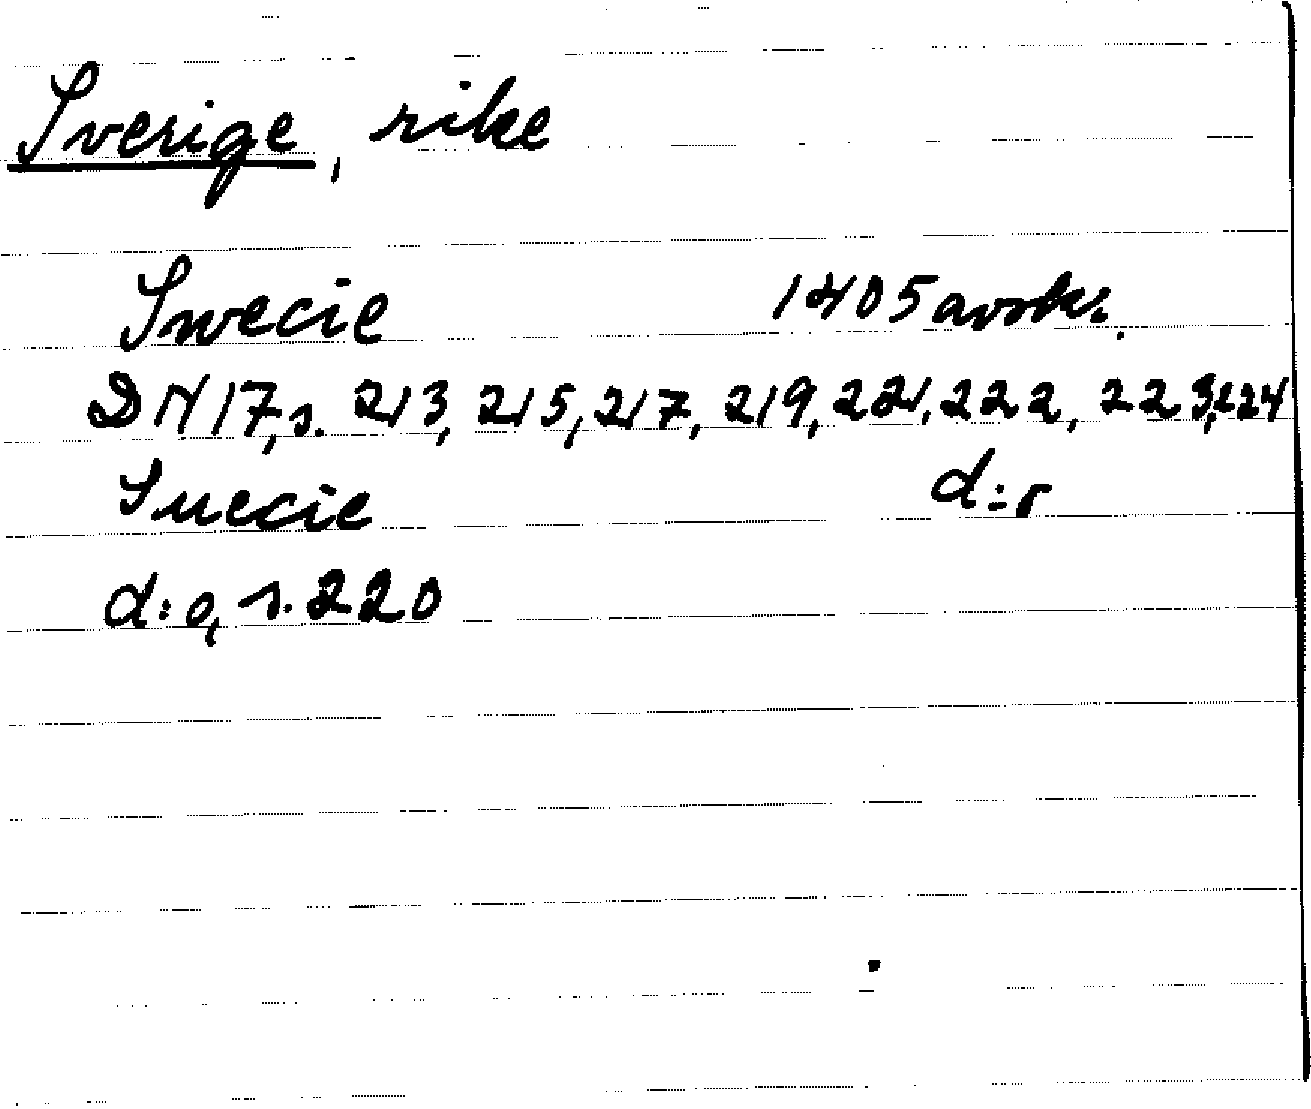 Sverige, rike
Swecie 1405 avskr.
DN 17, s. 213, 215, 217, 219, 221, 222, 223, 224
Suecie d:o
d:o, s. 220